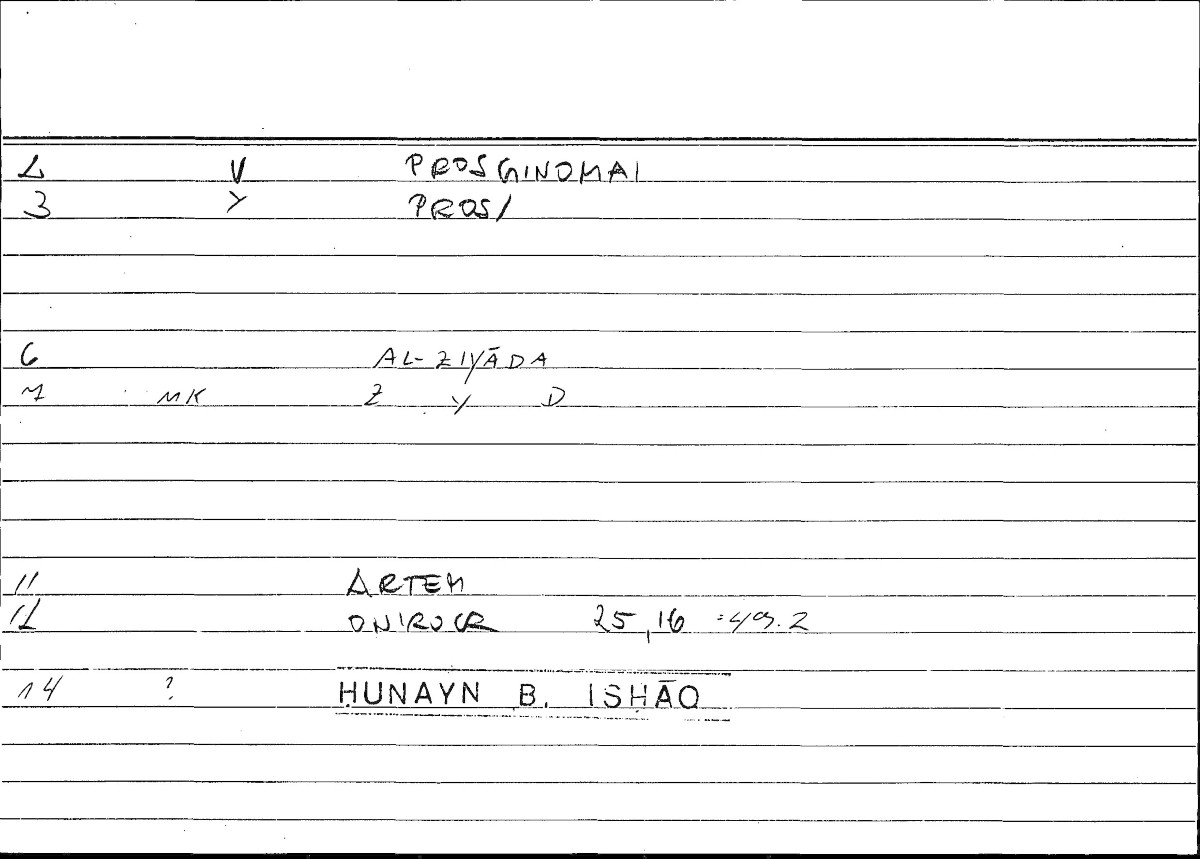 2 V PROSGINOMAI
3 Y PROS/
6 AL-ZIYĀDA
7 MK Z Y D
11 ARTEM
12 ONIROCR 25,16 =49.2
14 ? ḤUNAYN B. ISḤĀQ